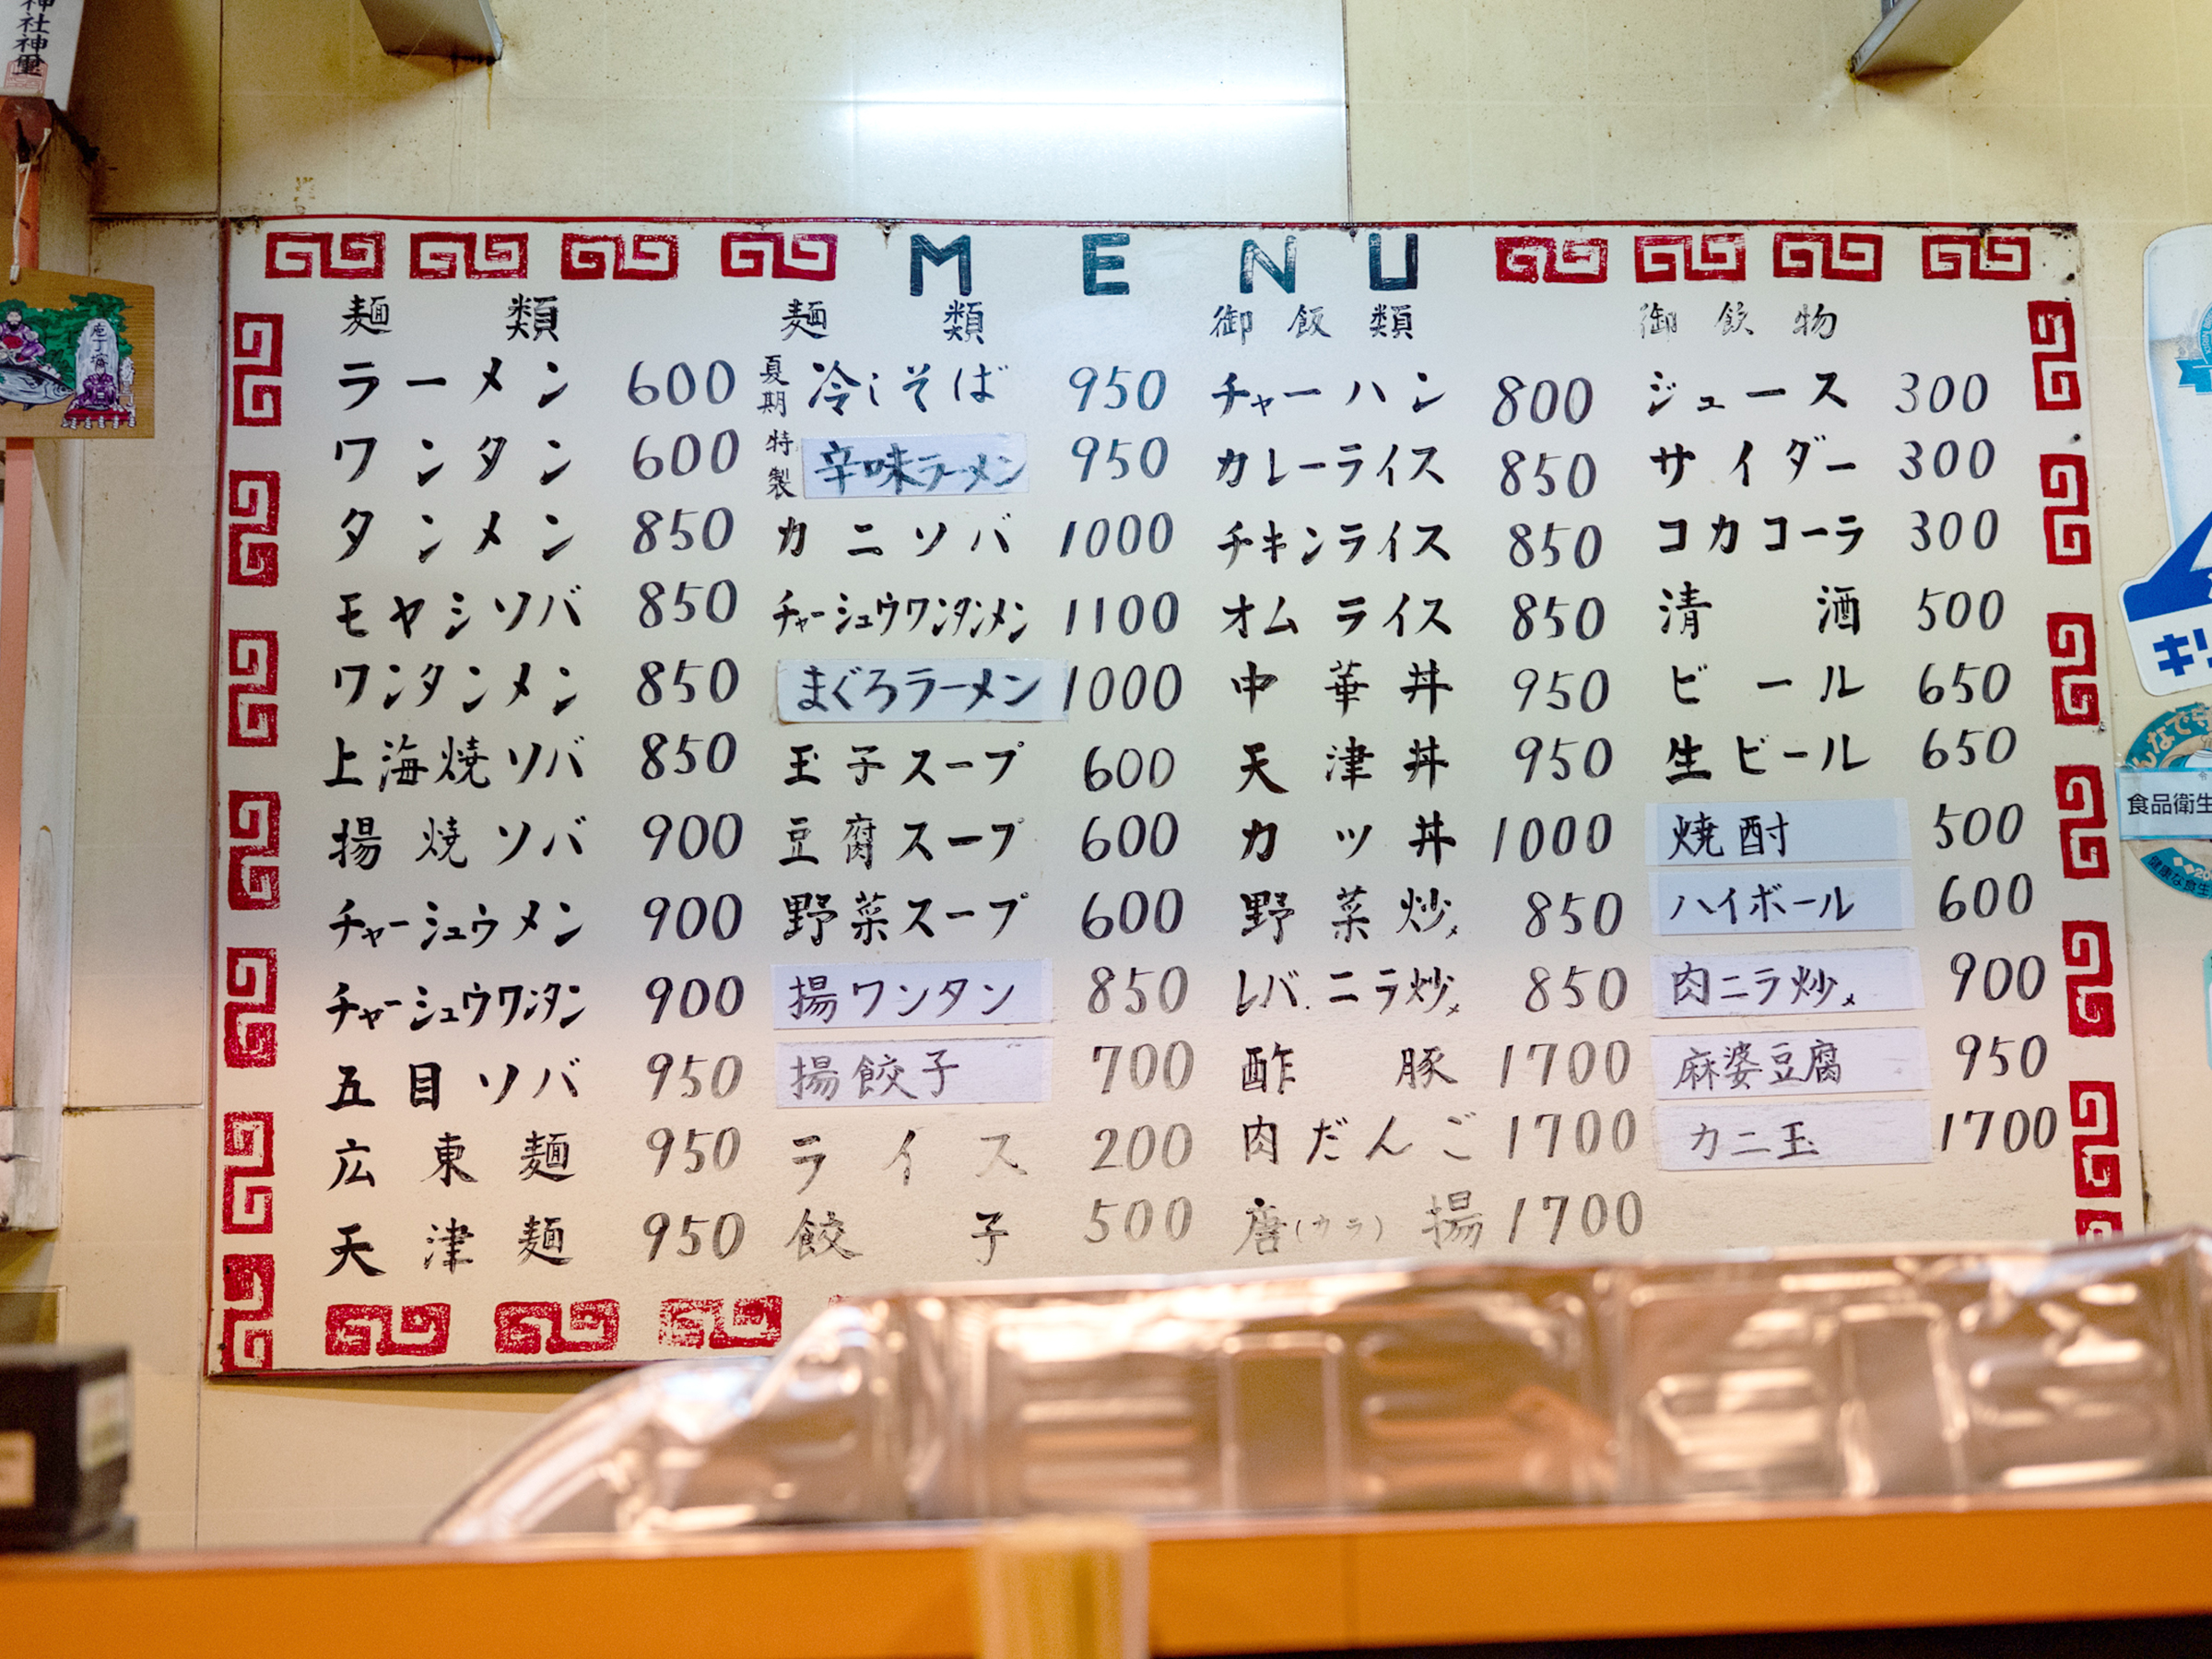 神社神璽
MENU
麺類
ラーメン 600
ワンタン 600
タンメン 850
モヤシソバ 850
ワンタンメン 850
上海焼ソバ 850
揚焼ソバ 900
チャーシュウメン 900
チャーシュウワンタン 900
五目ソバ 950
広東麺 950
天津麺 950
麺類
夏期 冷しそば 950
特製 辛味ラーメン 950
カニソバ 1000
チャーシュウワンタンメン 1100
まぐろラーメン 1000
玉子スープ 600
豆腐スープ 600
野菜スープ 600
揚ワンタン 850
揚餃子 700
ライス 200
餃子 500
御飯類
チャーハン 800
カレーライス 850
チキンライス 850
オムライス 850
中華丼 950
天津丼 950
カツ丼 1000
野菜炒メ 850
レバ.ニラ炒メ 850
酢豚 1700
肉だんご 1700
唐(カラ)揚 1700
御飲物
ジュース 300
サイダー 300
コカコーラ 300
清酒 500
ビール 650
生ビール 650
焼酎 500
ハイボール 600
肉ニラ炒メ 900
麻婆豆腐 950
カニ玉 1700
キリ
んなで守
食品衛生
健康な食生